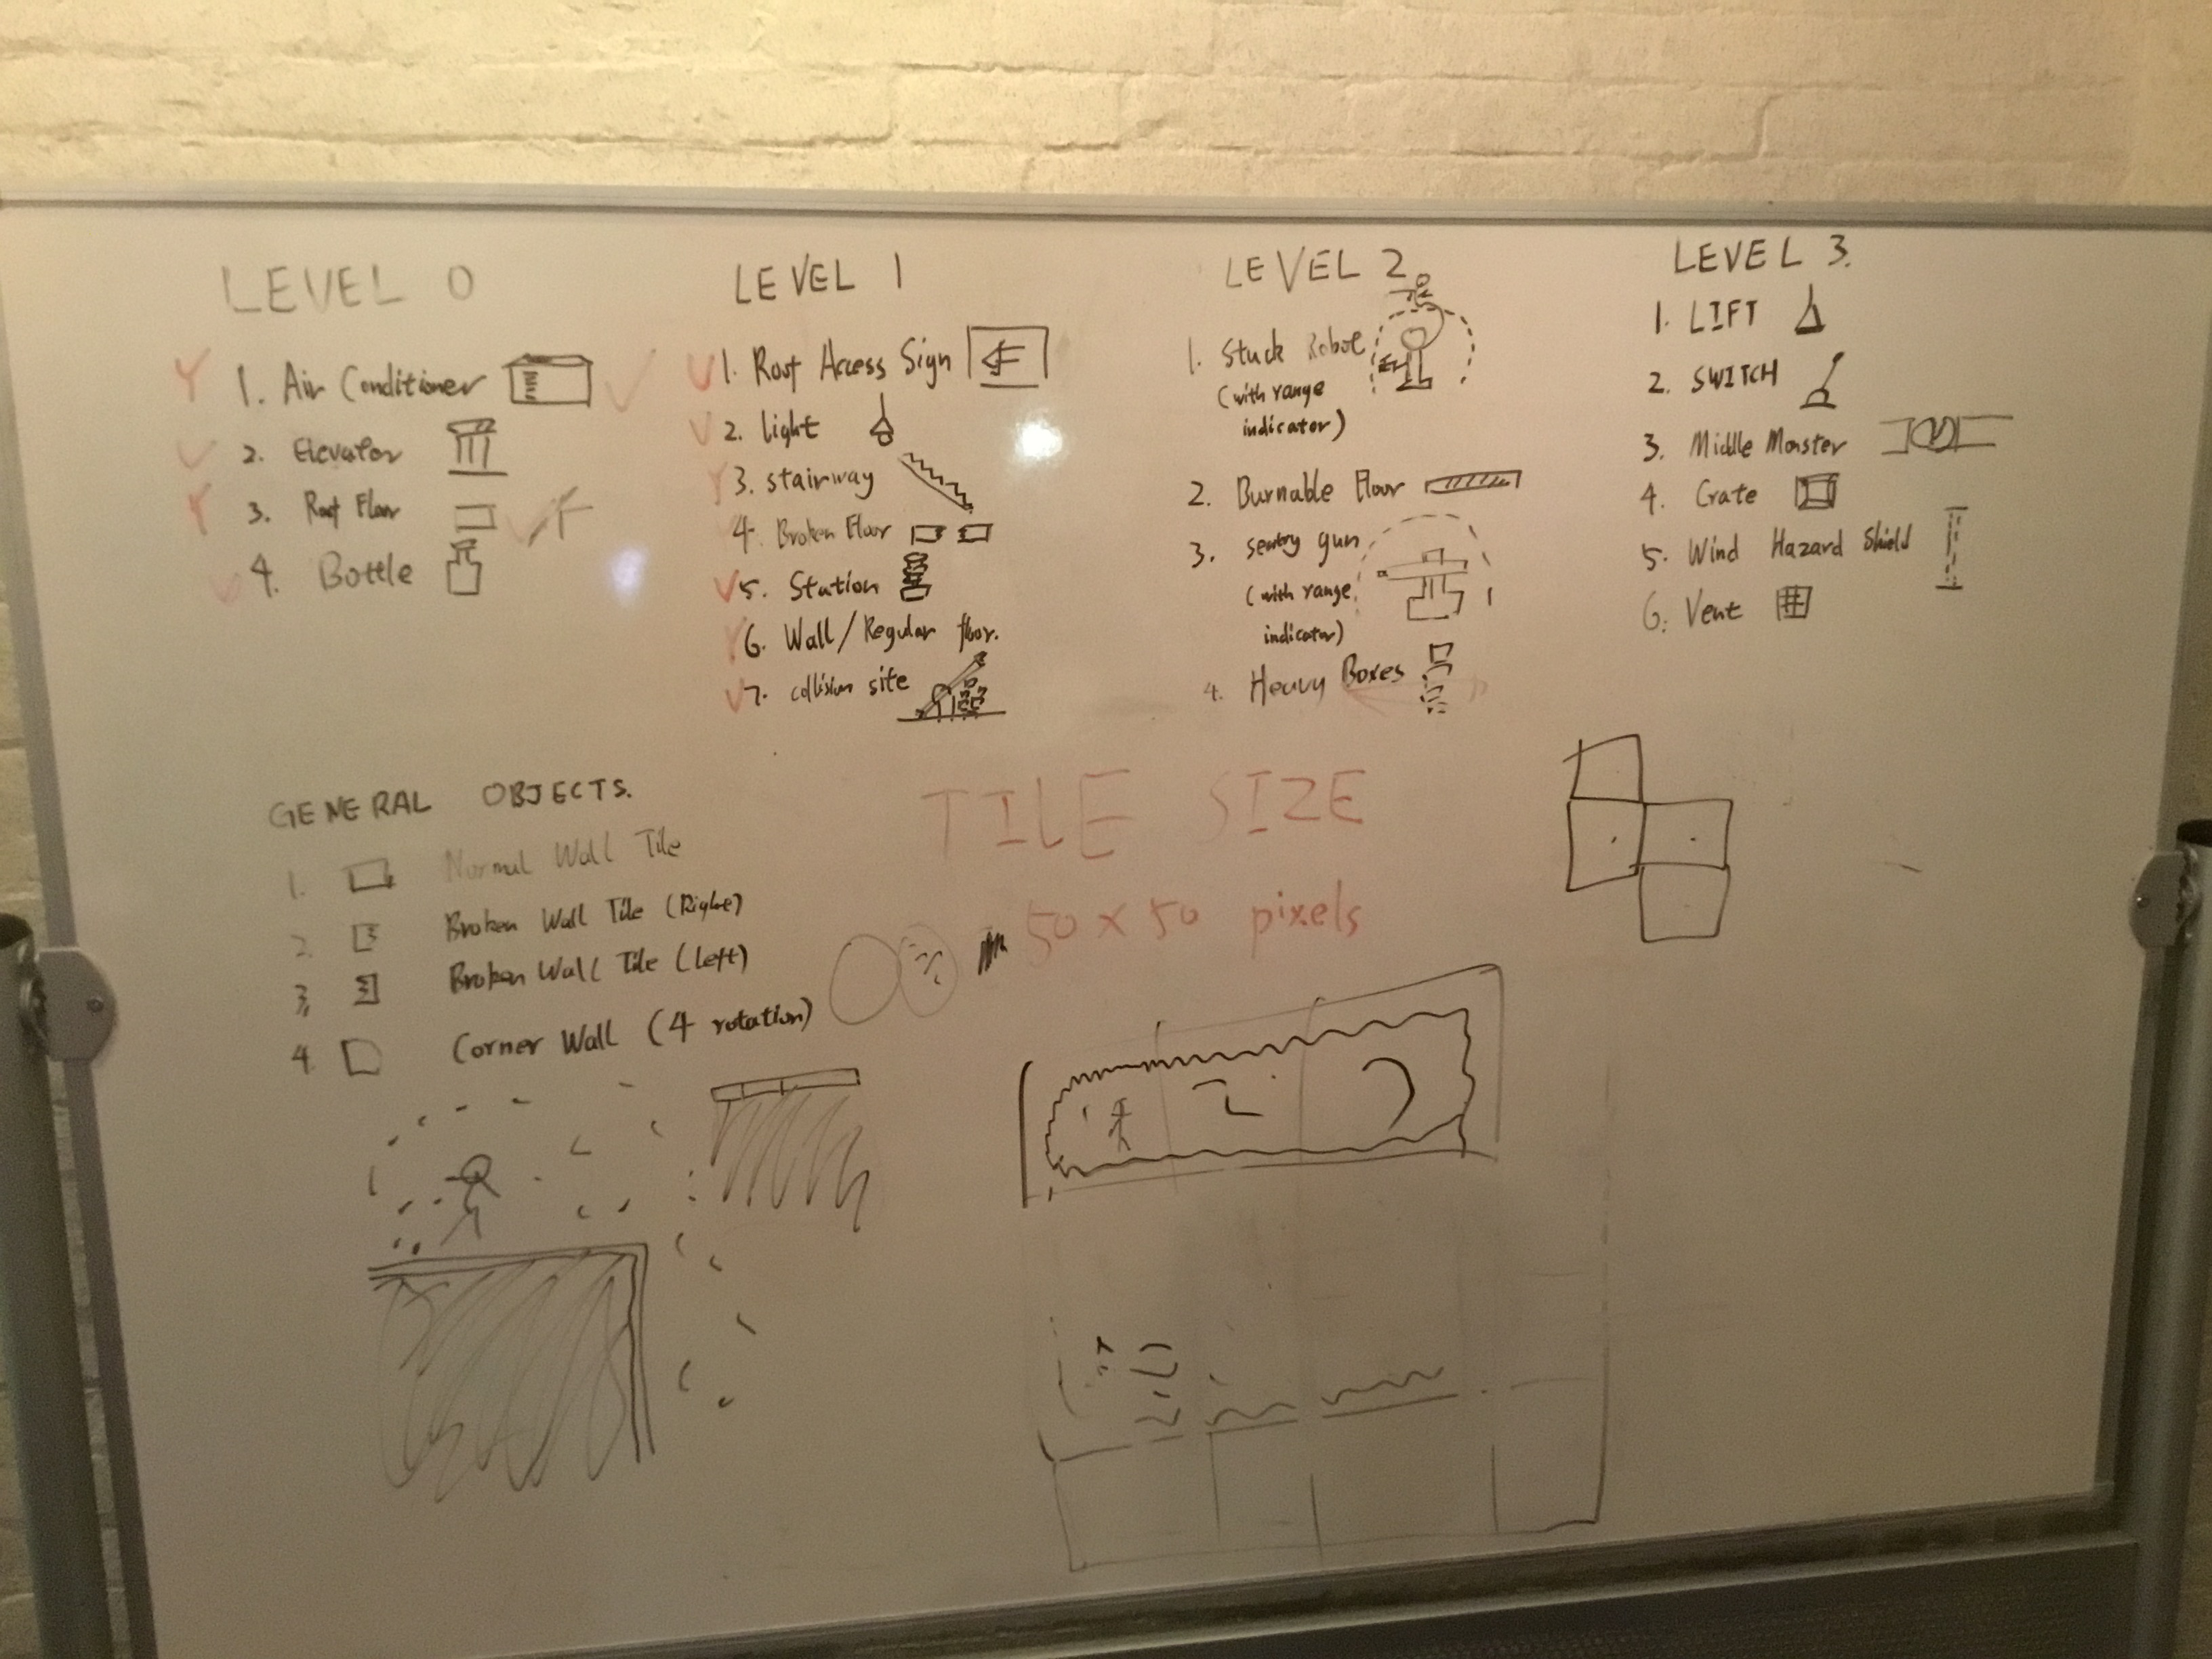 LEVEL 0
1. Air Conditioner
2. Elevator
3. Roof Floor
4. Bottle
LEVEL 1
1. Roof Access Sign
2. light
3. stairway
4. Broken Floor
5. Station
6. Wall/Regular floor.
7. collision site
LEVEL 2
1. Stuck Robot
(with range
indicator)
2. Burnable Floor
3. sentry gun
(with range
indicator)
4. Heavy Boxes
LEVEL 3.
1. LIFT
2. SWITCH
3. Middle Monster
4. Crate
5. Wind Hazard Shield
6. Vent
GENERAL OBJECTS.
1. Normal Wall Tile
2. Broken Wall Tile (Right)
3. Broken Wall Tile (left)
4. Corner Wall (4 rotation)
TILE SIZE
50 x 50 pixels